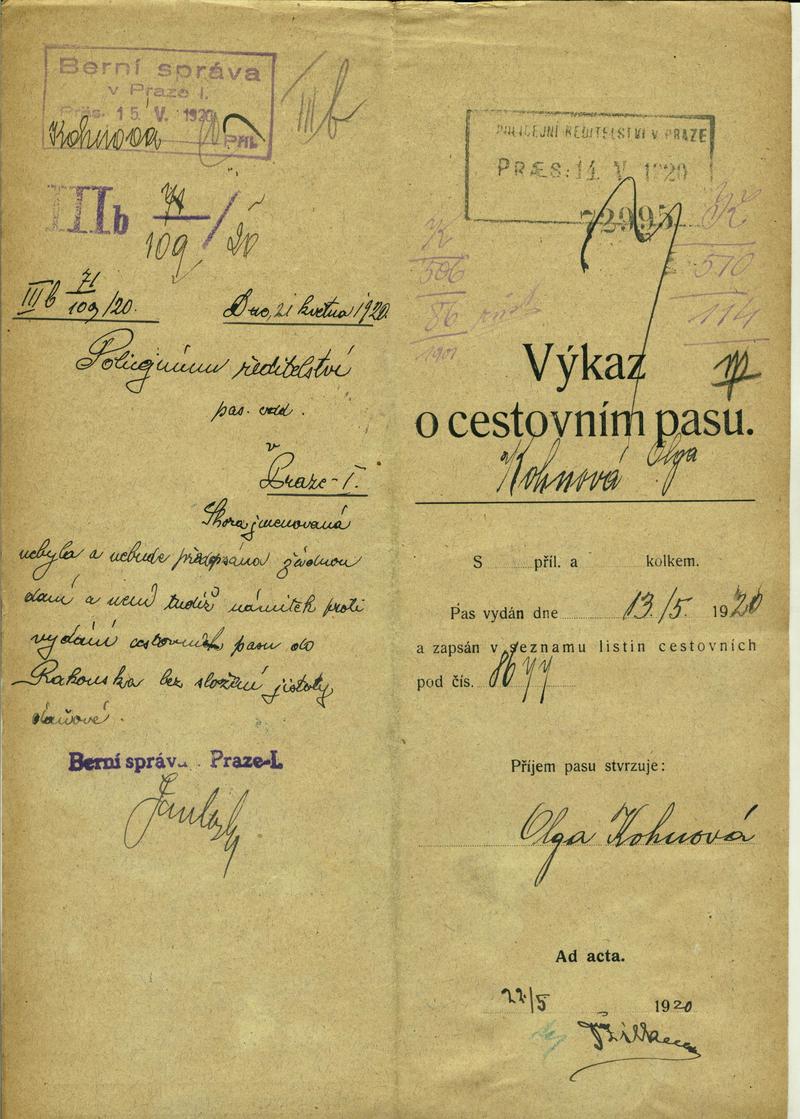 Berní správa
v Praze I.
Präs. 15. V. 1920
Kohnová
Příl.
III b
IIIb 71/109/20
III b 71/109/20.
Dne, 21 května 1920
Policejnímu ředitelství
pas. odd.
v
Praze-I.
Shora jmenovaná
nebyla a nebude předepsána žádnou
daní a není tudíž námitek proti
vydání cestovního pasu do
Rakouska bez složení jistoty
daňové.
Berní správa Praze-I.
POLICEJNÍ ŘEDITELSTVÍ V PRAZE
PRÆS: 14. V 1920
72995
K
506
86
1901
K
570
114
Výkaz
o cestovním pasu.
Kohnová Olga
S příl. a kolkem.
Pas vydán dne 13/5. 1920
a zapsán v seznamu listin cestovních
pod čís. 8677
Příjem pasu stvrzuje:
Olga Kohnová
Ad acta.
22/5 1920